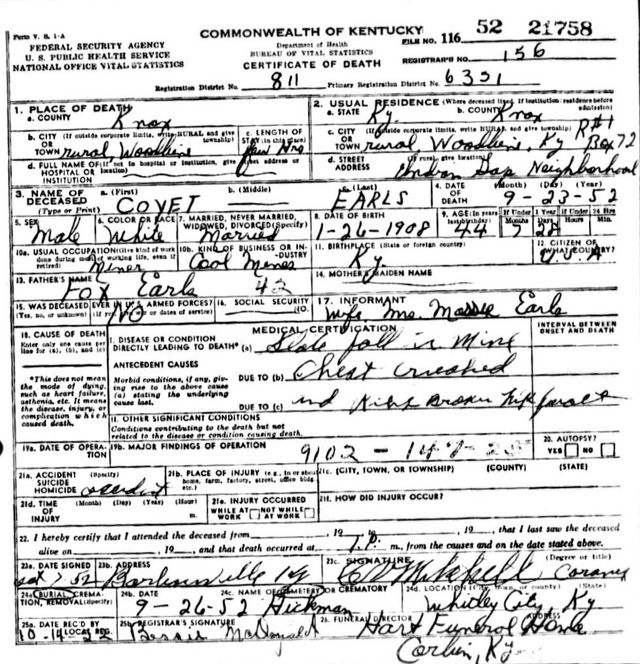 Form V. S. 1-A
FEDERAL SECURITY AGENCY
U. S. PUBLIC HEALTH SERVICE
NATIONAL OFFICE VITAL STATISTICS
COMMONWEALTH OF KENTUCKY
Department of Health
BUREAU OF VITAL STATISTICS
CERTIFICATE OF DEATH
FILE NO. 116 52 21758
REGISTRAR'S NO. 156
Registration District No. 811 Primary Registration District No. 6331
1. PLACE OF DEATH
a. COUNTY Knox
2. USUAL RESIDENCE (Where deceased lived. If institution: residence before admission)
a. STATE Ky. b. COUNTY Knox
b. CITY (If outside corporate limits, write RURAL and give township)
OR TOWN rural Woodbine
c. LENGTH OF STAY (in this place) few hrs
c. CITY (If outside corporate limits, write RURAL and give township) R#1
OR TOWN rural Woodbine, Ky Box 72
d. FULL NAME OF (If not in hospital or institution, give street address or location)
HOSPITAL OR INSTITUTION
d. STREET ADDRESS (If rural, give location)
Indian Gap Neighborhood
3. NAME OF DECEASED (Type or Print)
a. (First) COVET b. (Middle) c. (Last) EARLS
4. DATE OF DEATH (Month) (Day) (Year) 9-23-52
5. SEX Male
6. COLOR OR RACE White
7. MARRIED, NEVER MARRIED, WIDOWED, DIVORCED (Specify) Married
8. DATE OF BIRTH 1-26-1908
9. AGE (In years last birthday) 44 If Under 1 Year Months 7 Days 28 If Under 24 Hrs Hours Min.
10a. USUAL OCCUPATION (Give kind of work done during most of working life, even if retired) Miner
10b. KIND OF BUSINESS OR INDUSTRY Coal Mines
11. BIRTHPLACE (State or foreign country) Ky
12. CITIZEN OF WHAT COUNTRY? U S A
13. FATHER'S NAME Fox Earls 42
14. MOTHER'S MAIDEN NAME
15. WAS DECEASED EVER IN U.S. ARMED FORCES?
(Yes, no, or unknown) (If yes, give war or dates of service) NO
16. SOCIAL SECURITY NO.
17. INFORMANT
Wife Mrs. Massie Earls
18. CAUSE OF DEATH
Enter only one cause per line for (a), (b), and (c)
*This does not mean the mode of dying, such as heart failure, asthenia, etc. It means the disease, injury, or complication which caused death.
MEDICAL CERTIFICATION
INTERVAL BETWEEN ONSET AND DEATH
I. DISEASE OR CONDITION DIRECTLY LEADING TO DEATH* (a) Slate fall in Mine
ANTECEDENT CAUSES
Morbid conditions, if any, giving rise to the above cause (a) stating the underlying cause last.
DUE TO (b) Chest crushed
DUE TO (c) and Ribs Broken
II. OTHER SIGNIFICANT CONDITIONS
Conditions contributing to the death but not related to the disease or condition causing death.
19a. DATE OF OPERATION
19b. MAJOR FINDINGS OF OPERATION
9102 - 147-25
20. AUTOPSY?
YES NO
21a. ACCIDENT SUICIDE HOMICIDE accident
21b. PLACE OF INJURY (e.g., in or about home, farm, factory, street, office bldg. etc.)
21c. (CITY, TOWN, OR TOWNSHIP) (COUNTY) (STATE)
21d. TIME OF INJURY (Month) (Day) (Year) (Hour) m.
21e. INJURY OCCURRED
WHILE AT WORK NOT WHILE AT WORK
21f. HOW DID INJURY OCCUR?
22. I hereby certify that I attended the deceased from , 19 to , 19 , that I last saw the deceased
alive on , 19 , and that death occurred at m., from the causes and on the date stated above.
23a. DATE SIGNED
23b. ADDRESS Barbourville Ky
23c. SIGNATURE Mitchell Coroner (Degree or title)
24a. BURIAL, CREMATION, REMOVAL (Specify)
24b. DATE 9-26-52
24c. NAME OF CEMETERY OR CREMATORY Hickman
24d. LOCATION (City, town, or county) (State)
Whitley City, Ky
25a. DATE REC'D BY LOCAL REG.
25b. REGISTRAR'S SIGNATURE Bessie McDonald
26. FUNERAL DIRECTOR Hart Funeral Home
Corbin, Ky